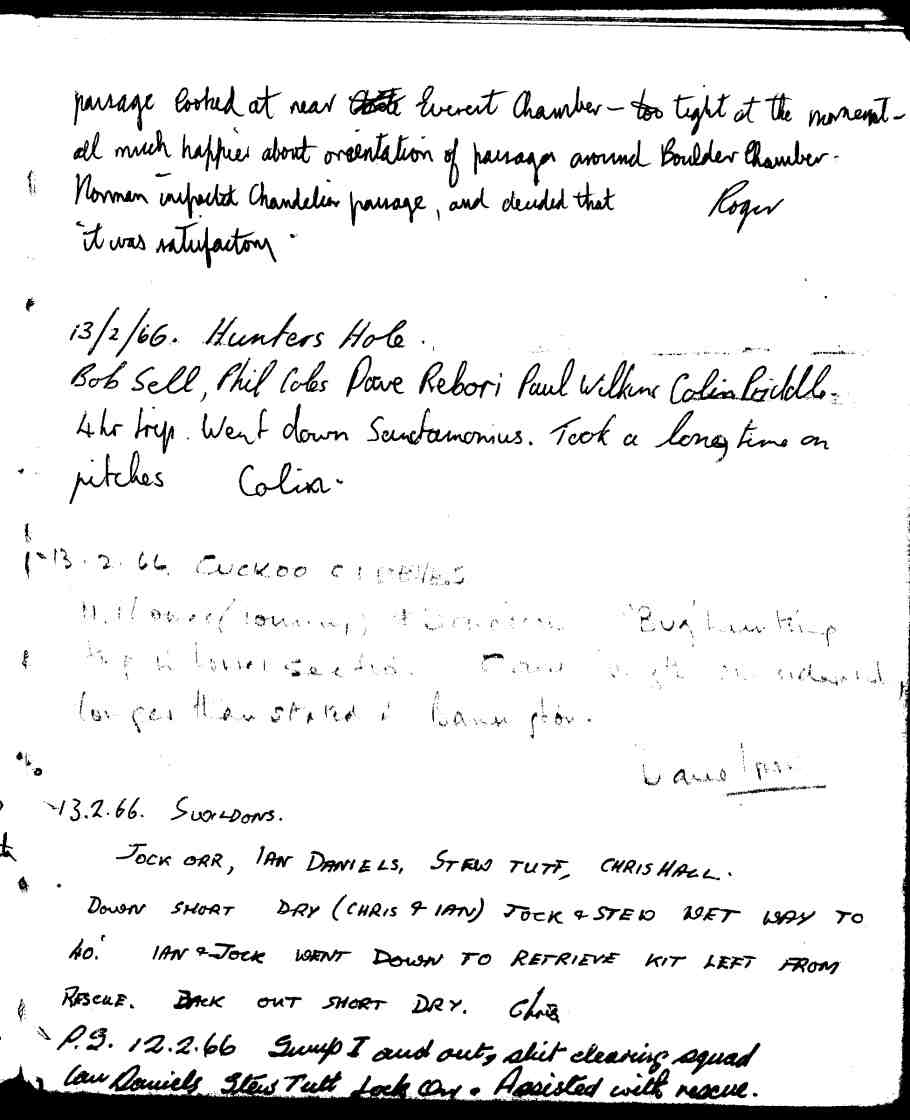 passage looked at near Everest Chamber — too tight at the moment -
all much happier about orientation of passages around Boulder Chamber.
Norman inspected Chandelier passage, and decided that Roger
"it was satisfactory"
13/2/66. Hunters Hole.
Bob Sell, Phil Coles Dave Rebori Paul Wilkins Colin Priddle.
4 hr trip. Went down Sanctamonius. Took a long time on
pitches Colin.
13.2.66. CUCKOO CLEEVES
'Bug' hunting
trip in lower section.
longer than stated in
Dave
13.2.66. SWILDONS.
JOCK ORR, IAN DANIELS, STEW TUTT, CHRIS HALL.
DOWN SHORT DRY (CHRIS & IAN) JOCK & STEW WET WAY TO
40'. IAN & JOCK WENT DOWN TO RETRIEVE KIT LEFT FROM
RESCUE. BACK OUT SHORT DRY. Chris
P.S. 12.2.66 Sump I and out, shit clearing squad
Ian Daniels Stew Tutt Jock Orr. Assisted with rescue.